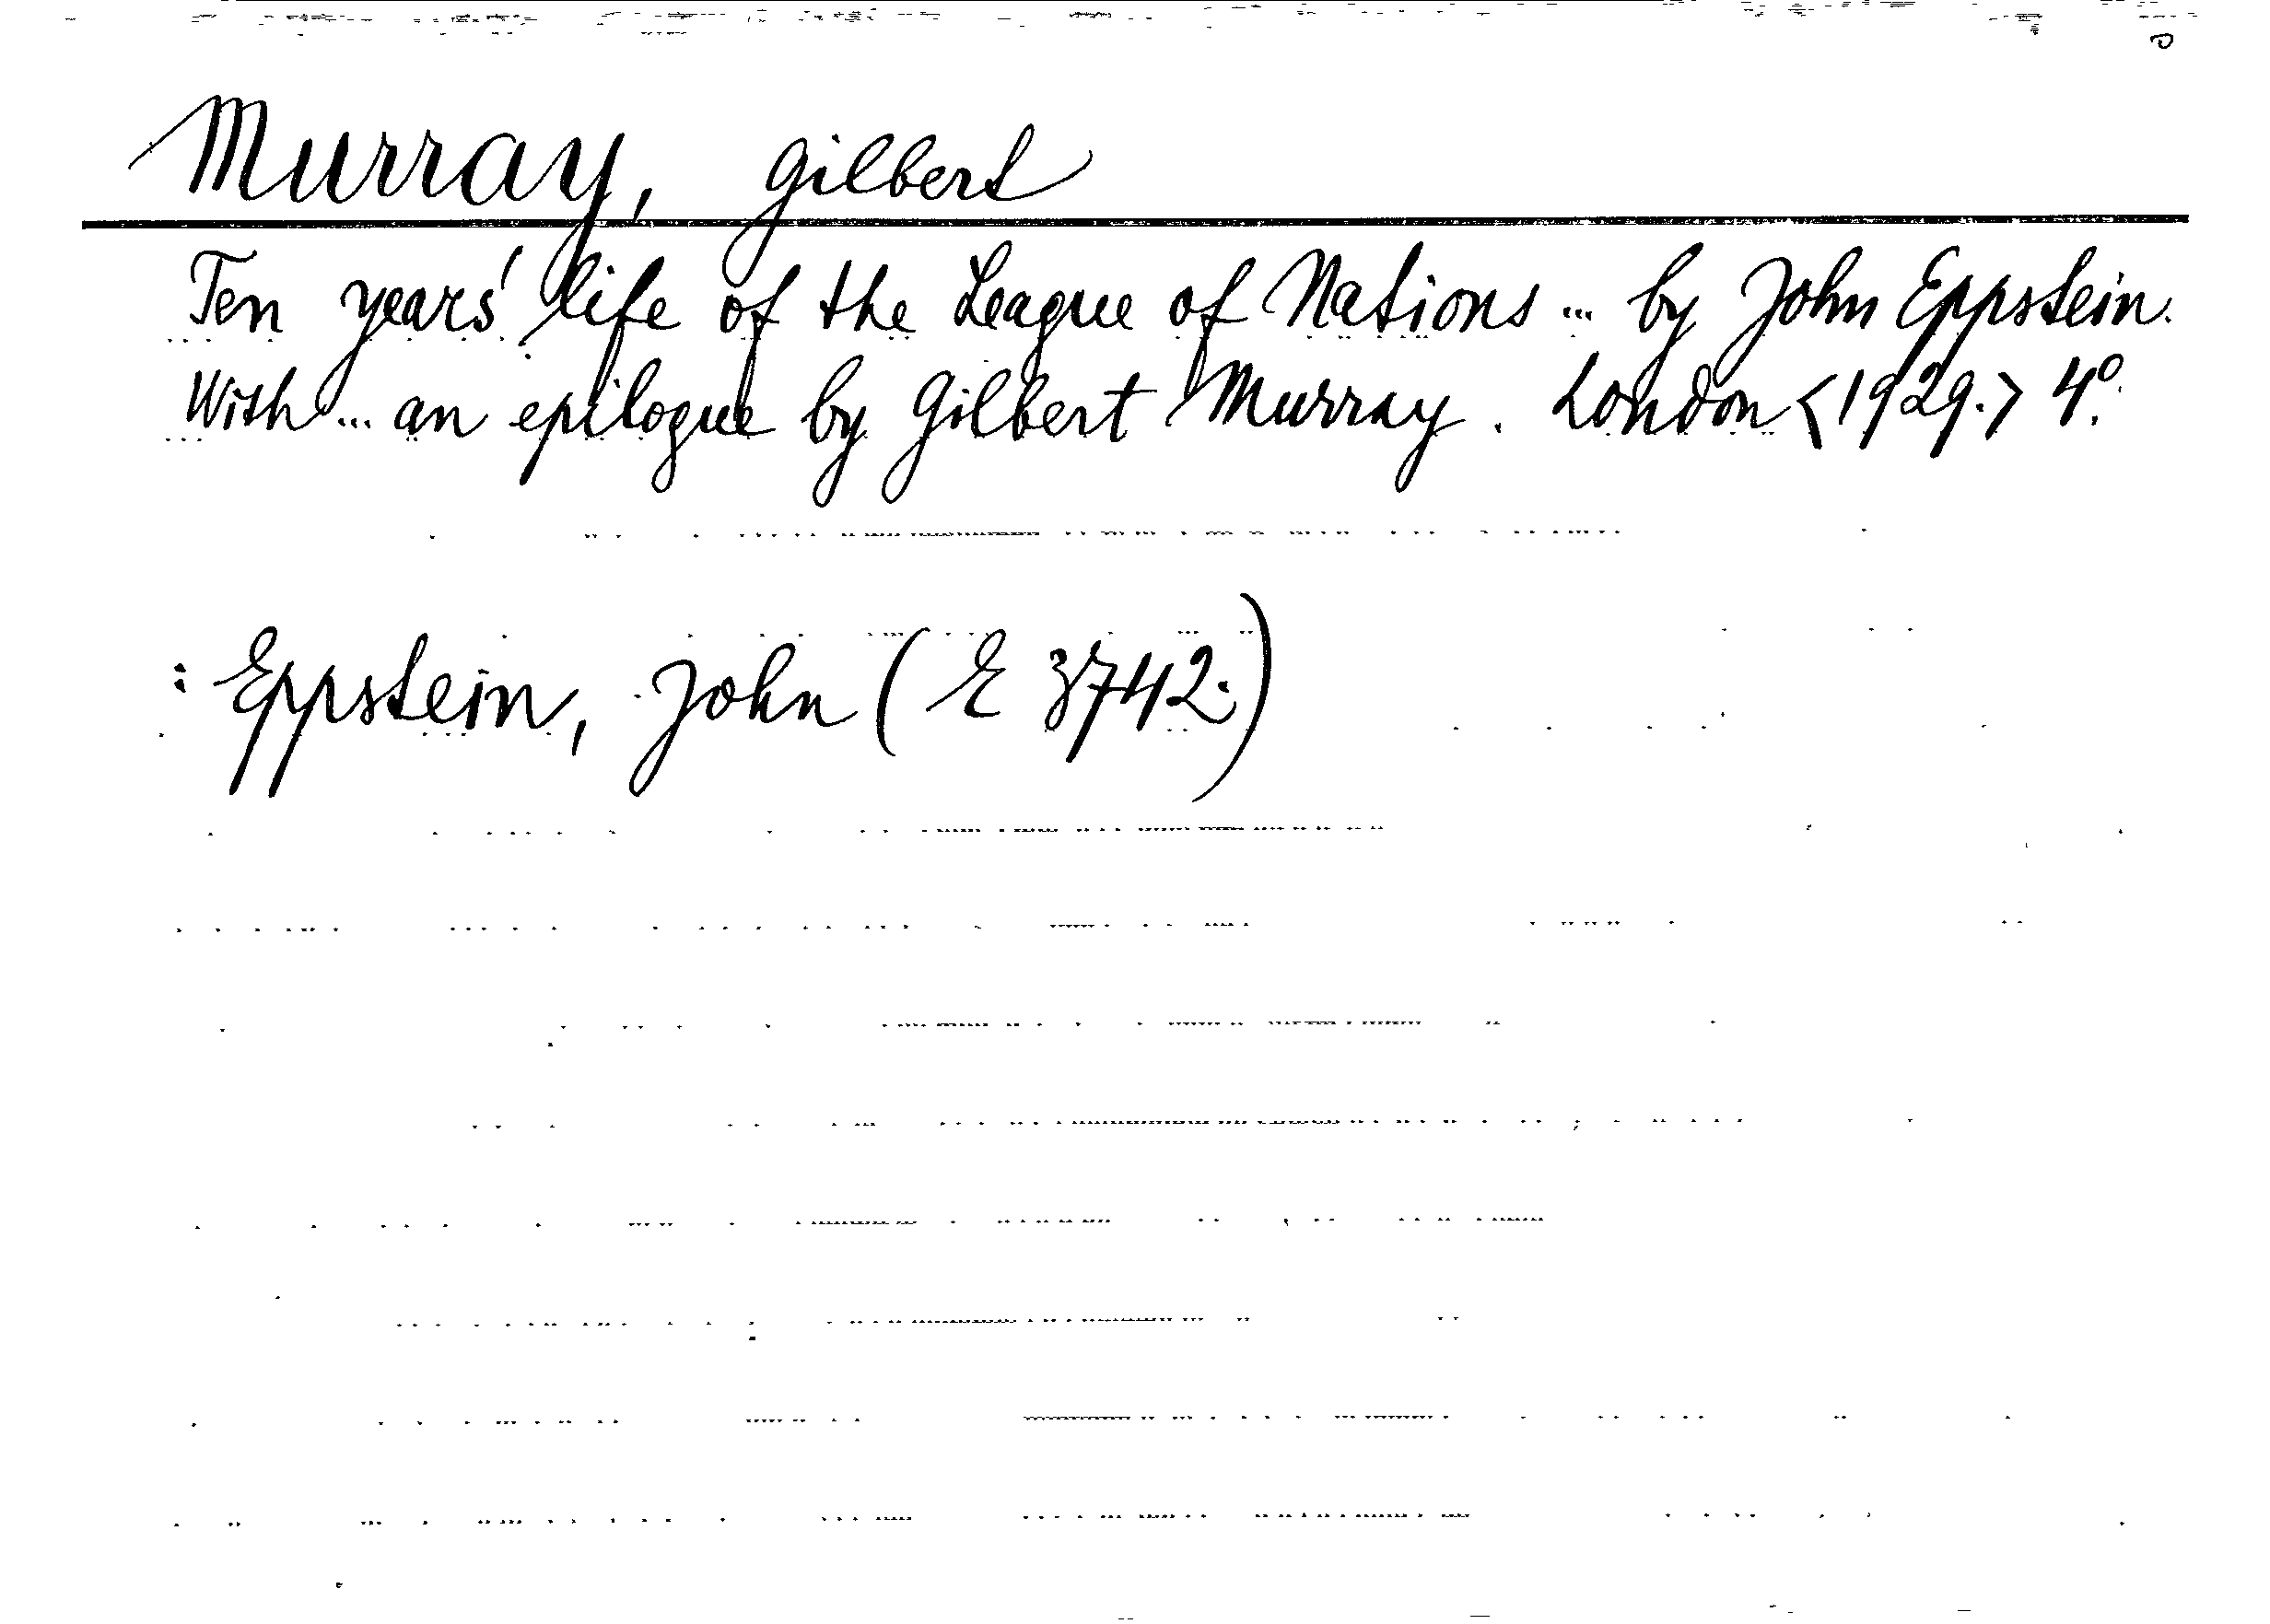 Murray, Gilbert
Ten years' life of the League of Nations ... by John Eppstein.
With ... an epilogue by Gilbert Murray. London <1929.> 4º.
: Eppstein, John (E 3742.)